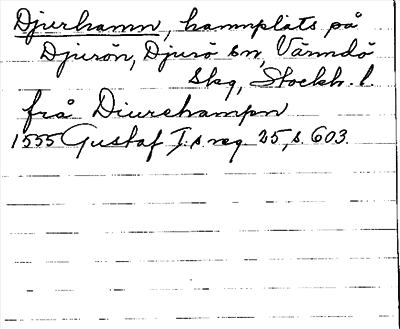 Djurhamn, hamnplats på
Djurön, Djurö sn, Värmdö
skg, Stockh. l.
frå Diurehampn
1555 Gustaf I:s reg. 25, s. 603.